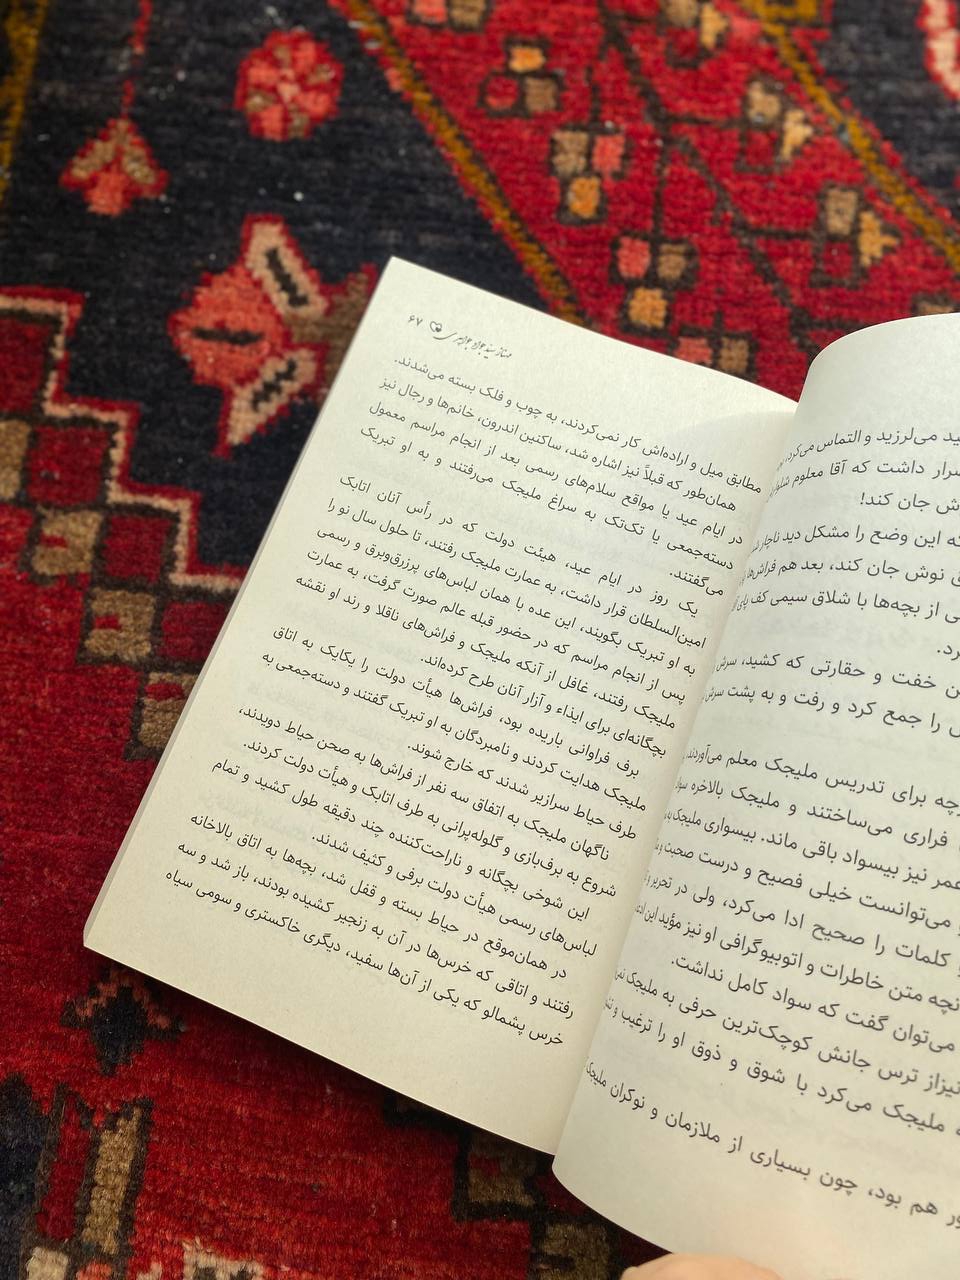 ید می‌لرزید و التماس می‌کرد،
سرار داشت که آقا معلوم
ش جان کند!
که این وضع را مشکل دید ناچار
ق نوش جان کند، بعد هم فراش‌ها
ی از بچه‌ها با شلاق سیمی کف پای
رد.
ن خفت و حقارتی که کشید، سرش
ش را جمع کرد و رفت و به پشت سرش
رچه برای تدریس ملیجک معلم می‌آوردند
فراری می‌ساختند و ملیجک بالاخره سواد
عمر نیز بیسواد باقی ماند. بیسواری ملیجک
می‌توانست خیلی فصیح و درست صحبت
کلمات را صحیح ادا می‌کرد، ولی در تحریر
نچه متن خاطرات و اتوبیوگرافی او نیز مؤید این
می‌توان گفت که سواد کامل نداشت.
نیز از ترس جانش کوچک‌ترین حرفی به ملیجک
ملیجک می‌کرد با شوق و ذوق او را ترغیب و
ور هم بود، چون بسیاری از ملازمان و نوکران ملیجک
مهناز سید جواد جواهری ۶۷
مطابق میل و اراده‌اش کار نمی‌کردند، به چوب و فلک بسته می‌شدند.
همان‌طور که قبلاً نیز اشاره شد، ساکنین اندرون، خانم‌ها و رجال نیز
در ایام عید یا مواقع سلام‌های رسمی بعد از انجام مراسم معمول
دسته‌جمعی یا تک‌تک به سراغ ملیجک می‌رفتند و به او تبریک
می‌گفتند.
یک روز در ایام عید، هیئت دولت که در رأس آنان اتابک
امین‌السلطان قرار داشت، به عمارت ملیجک رفتند، تا حلول سال نو را
به او تبریک بگویند، این عده با همان لباس‌های پرزرق‌وبرق و رسمی
پس از انجام مراسم که در حضور قبله عالم صورت گرفت، به عمارت
ملیجک رفتند، غافل از آنکه ملیجک و فراش‌های ناقلا و رند او نقشه
بچگانه‌ای برای ایذاء و آزار آنان طرح کرده‌اند.
برف فراوانی باریده بود، فراش‌ها هیأت دولت را یکایک به اتاق
ملیجک هدایت کردند و نامبردگان به او تبریک گفتند و دسته‌جمعی به
طرف حیاط سرازیر شدند که خارج شوند.
ناگهان ملیجک به اتفاق سه نفر از فراش‌ها به صحن حیاط دویدند،
شروع به برف‌بازی و گلوله‌پرانی به طرف اتابک و هیأت دولت کردند.
این شوخی بچگانه و ناراحت‌کننده چند دقیقه طول کشید و تمام
لباس‌های رسمی هیأت دولت برفی و کثیف شدند.
در همان‌موقع در حیاط بسته و قفل شد، بچه‌ها به اتاق بالاخانه
رفتند و اتاقی که خرس‌ها در آن به زنجیر کشیده بودند، باز شد و سه
خرس پشمالو که یکی از آن‌ها سفید، دیگری خاکستری و سومی سیاه